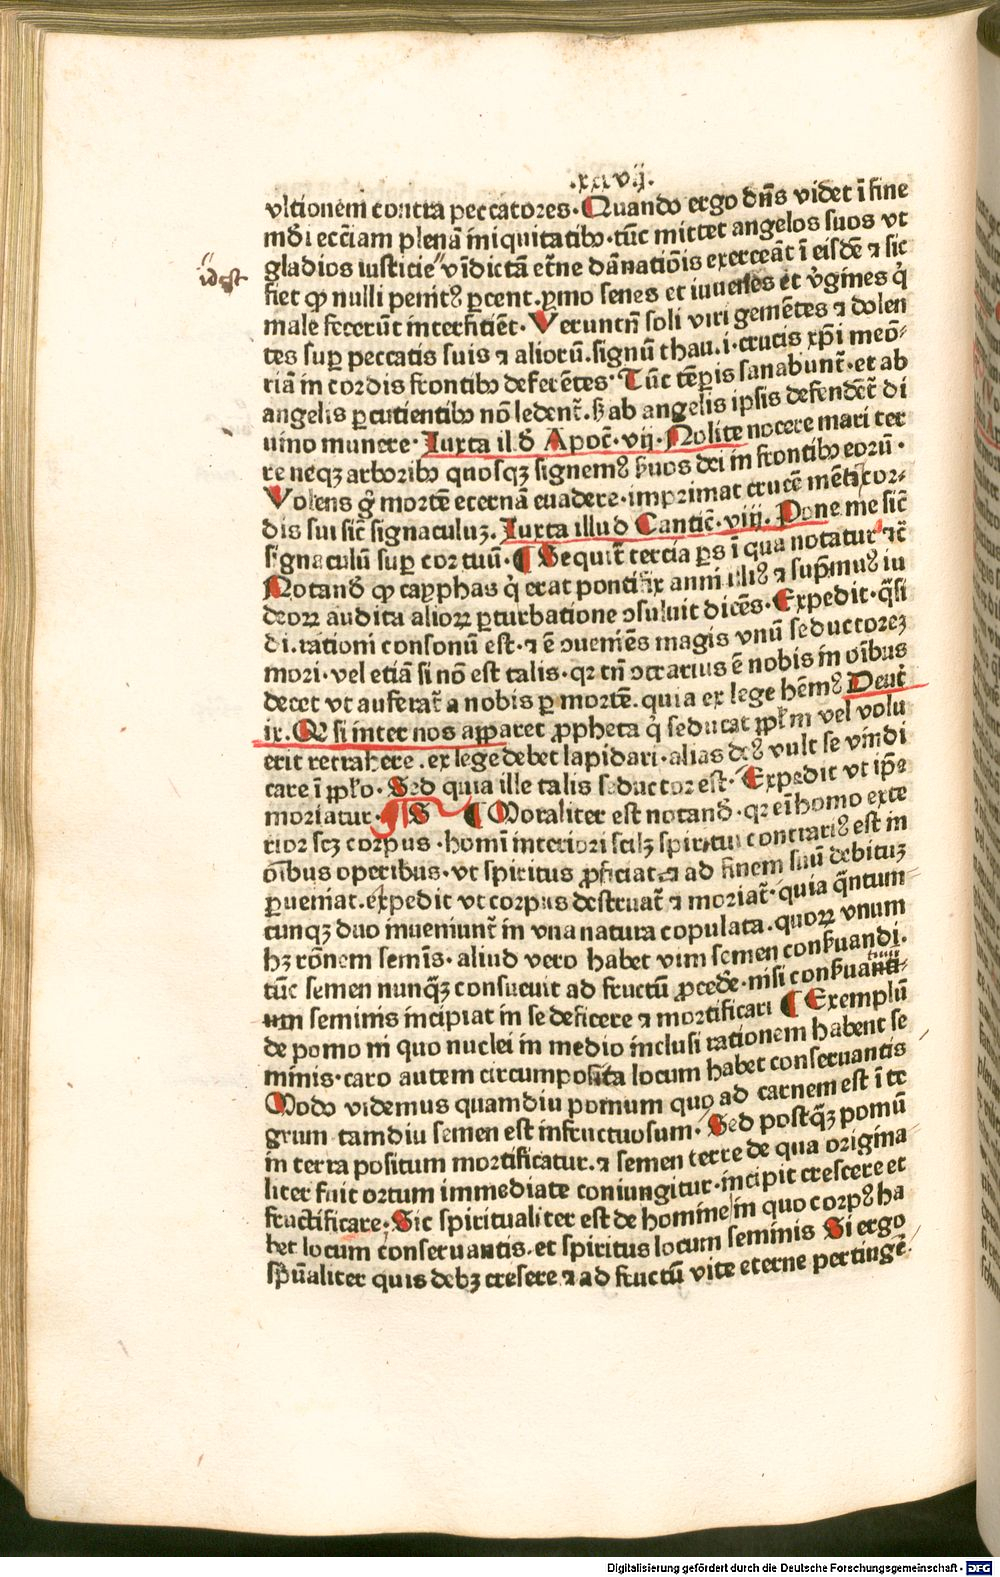 .xxvij.
vltionem contra peccatores. Quando ergo dn̄s videt ī fine
mūdi ecc̄iam plenā iniquitatibꝰ. tūc mittet angelos suos vt
gladios iusticie vīdictā et̄ne dānatiōis exerceāt ī eisdē ⁊ sic
idest
fiet ꝙ nulli penitꝰ ꝑcent. pͥmo senes et iuuenes et vͥgines qͥ
male fecerūt interfitiēt. Veruntn̄ soli viri gemētes ⁊ dolen
tes suꝑ peccatis suis ⁊ aliorū. signū thau .i. crucis xp̄i meō-
riā in cordis frontibꝰ deferētes. Tūc tēꝑis sanabunt̄. et ab
angelis ꝑcutientibꝰ nō ledent̄. hͦ ab angelis ipsis defendēt̄ di
uino munere. Iuxta il ď Apoc̄. vij. Nolite nocere mari ter
re neqꝫ arboribꝰ quosqꝫ signemꝰ ẜuos dei in frontibꝰ eorū.
Volens gͦ mortē eternā euadere. imprimat crucē mēti cor-
dis sui sic̄ signaculuꝫ. Iuxta illud Cantic̄. viij. Pone me sic̄
signaculū suꝑ cor tuū. ¶ Sequit̄ tercia ꝑs ī qua notatur ⁊c̄
Notand̄ ꝙ cayphas qͥ erat pontifix anni illiꝰ ⁊ sup̄musꝰ iu
deoꝝ audita alioꝝ ꝑturbatione ↄsuluit dicēs. Expedit. q̄si
di. rationi consonū est. ⁊ ē ↄueniēs magis vnū seductoreꝫ
mori. vel etiā si nō est talis. qꝛ tn̄ ↄtrarius ē nobis in oībus
decet vt auferat̄ a nobis ꝑ mortē. quia ex lege hēmꝰ Deut̄
ix. Qꝛ si inter nos apparet ꝓpheta qͥ seducat ꝓpl̄m vel volu
erit retrahere. ex lege debet lapidari. alias deꝰ vult se vindi
care ī ꝓplo. Sed quia ille talis seductor est. Expedit vt ip̄e
moriatur. ¶ S ¶ Moraliter est notand̄. qꝛ eī homo exte
rior scꝫ corpus. homī interiori scilꝫ spiritui contrariꝰ est in
oībus operibus. vt spiritus ꝓficiat. ⁊ ad finem suū debituꝫ
ꝑueniat. expedit vt corpus destruat̄ ⁊ moriat̄. quia q̄ntum-
cunqꝫ duo inueniunt̄ in vna natura copulata. quoꝝ vnum
hꝫ rōnem semīs. aliud vero habet vim semen conẜuandi.
tūc semen nunqͣꝫ consueuit ad fructū ꝓcedē. nisi conẜuanti-
um seminis incipiat in se deficere ⁊ mortificari ¶ Exemplū
de pomo in quo nuclei in medio inclusi rationem habent se
minis. caro autem circumposita locum habet conseruantis
Modo videmus quamdiu pomum quo ad carnem est ī te
grum tamdiu semen est infructuosum. Sed postqͣꝫ pomū
in terra positum mortificatur. ⁊ semen terre de qua origina
liter fuit ortum immediate coniungitur. incipit crescere et
fructificare. Sic spiritualiter est de homine in quo corpꝰ ha
bet locum conseruantis. et spiritus locum seminis Si ergo
sp̄ualiter quis debꝫ cresere ⁊ ad fructū vite eterne pertingē.
Digitalisierung gefördert durch die Deutsche Forschungsgemeinschaft - DFG